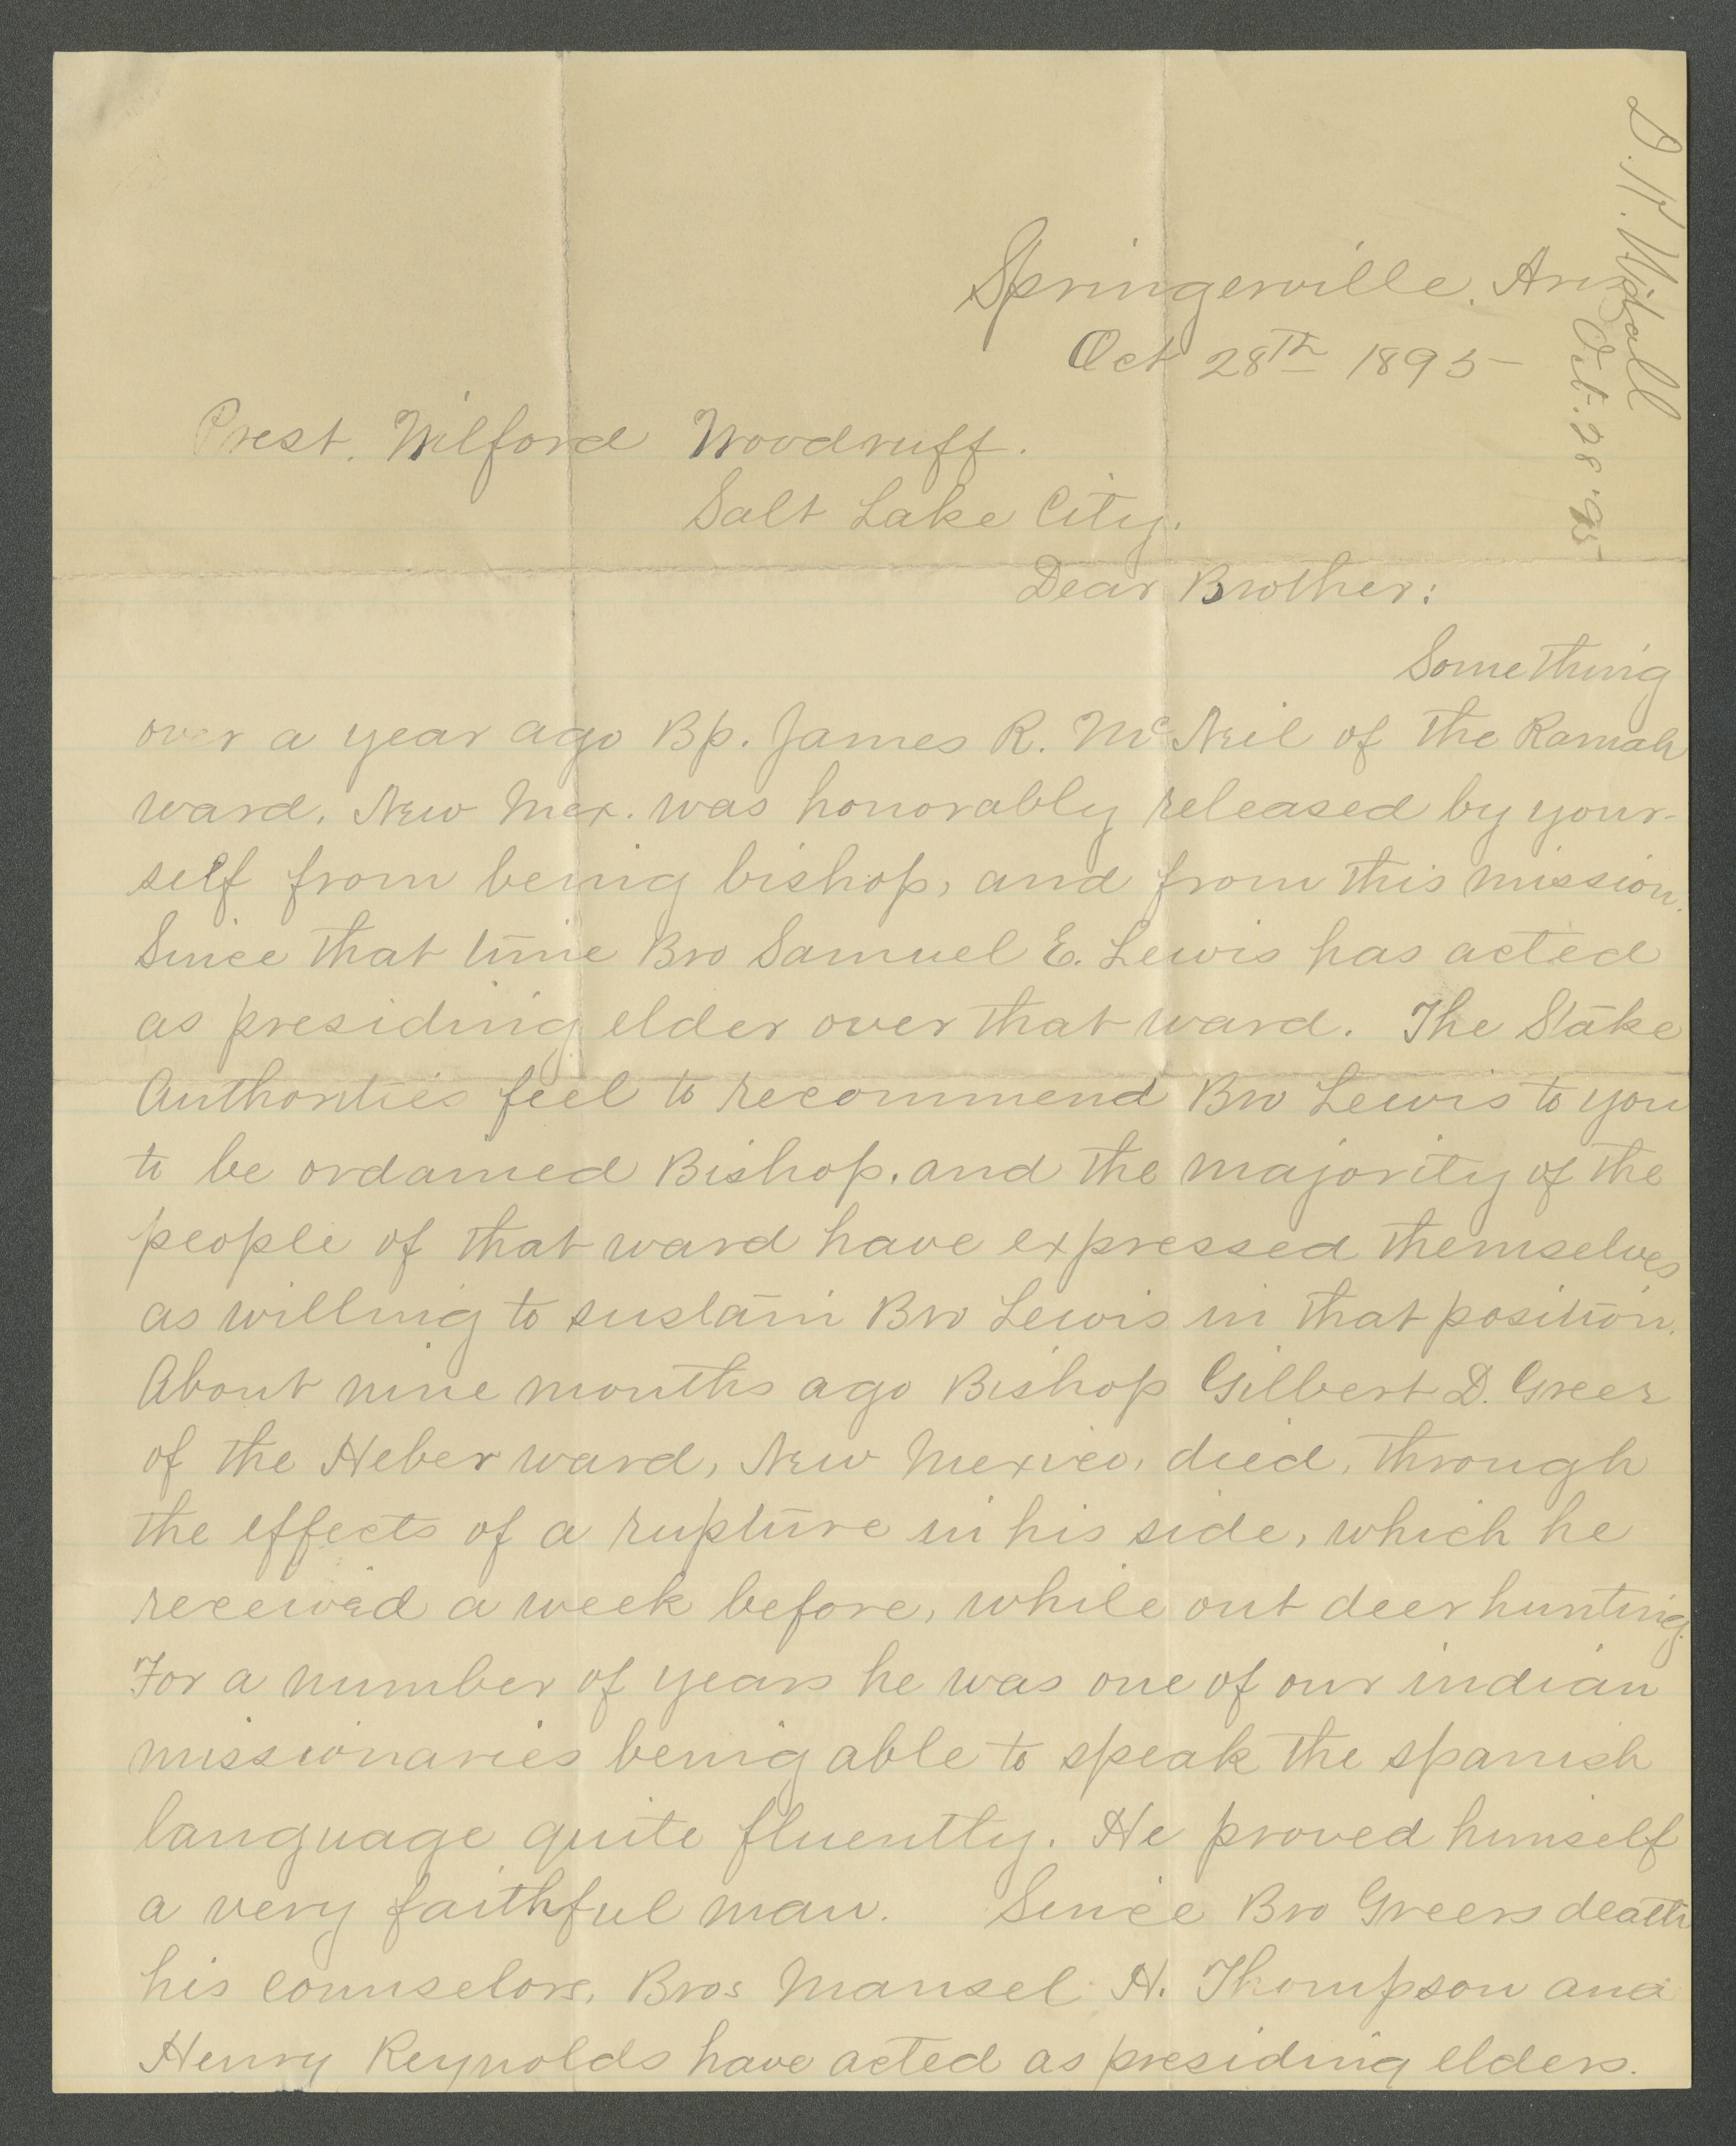 D. K. Udall
Oct. 28 '95
Springerville. Ariz
Oct 28th 1895
Prest. Wilford Woodruff.
Salt Lake City.
Dear Brother:
Something
over a year ago Bp. James R. McNeil of the Ramah
ward, New Mex. was honorably released by your-
self from being bishop, and from this mission.
Since that time Bro Samuel E. Lewis has acted
as presiding elder over that ward. The Stake
Authorities feel to recommend Bro Lewis to you
to be ordained Bishop, and the majority of the
people of that ward have expressed themselves
as willing to sustain Bro Lewis in that position.
About nine months ago Bishop Gilbert D. Greer
of the Heber ward, New Mexico, died, through
the effects of a rupture in his side, which he
received a week before, while out deer hunting.
For a number of years he was one of our indian
missionaries being able to speak the spanish
language quite fluently. He proved himself
a very faithful man. Since Bro Greers death
his counselors, Bros Mansel H. Thompson and
Henry Reynolds have acted as presiding elders.